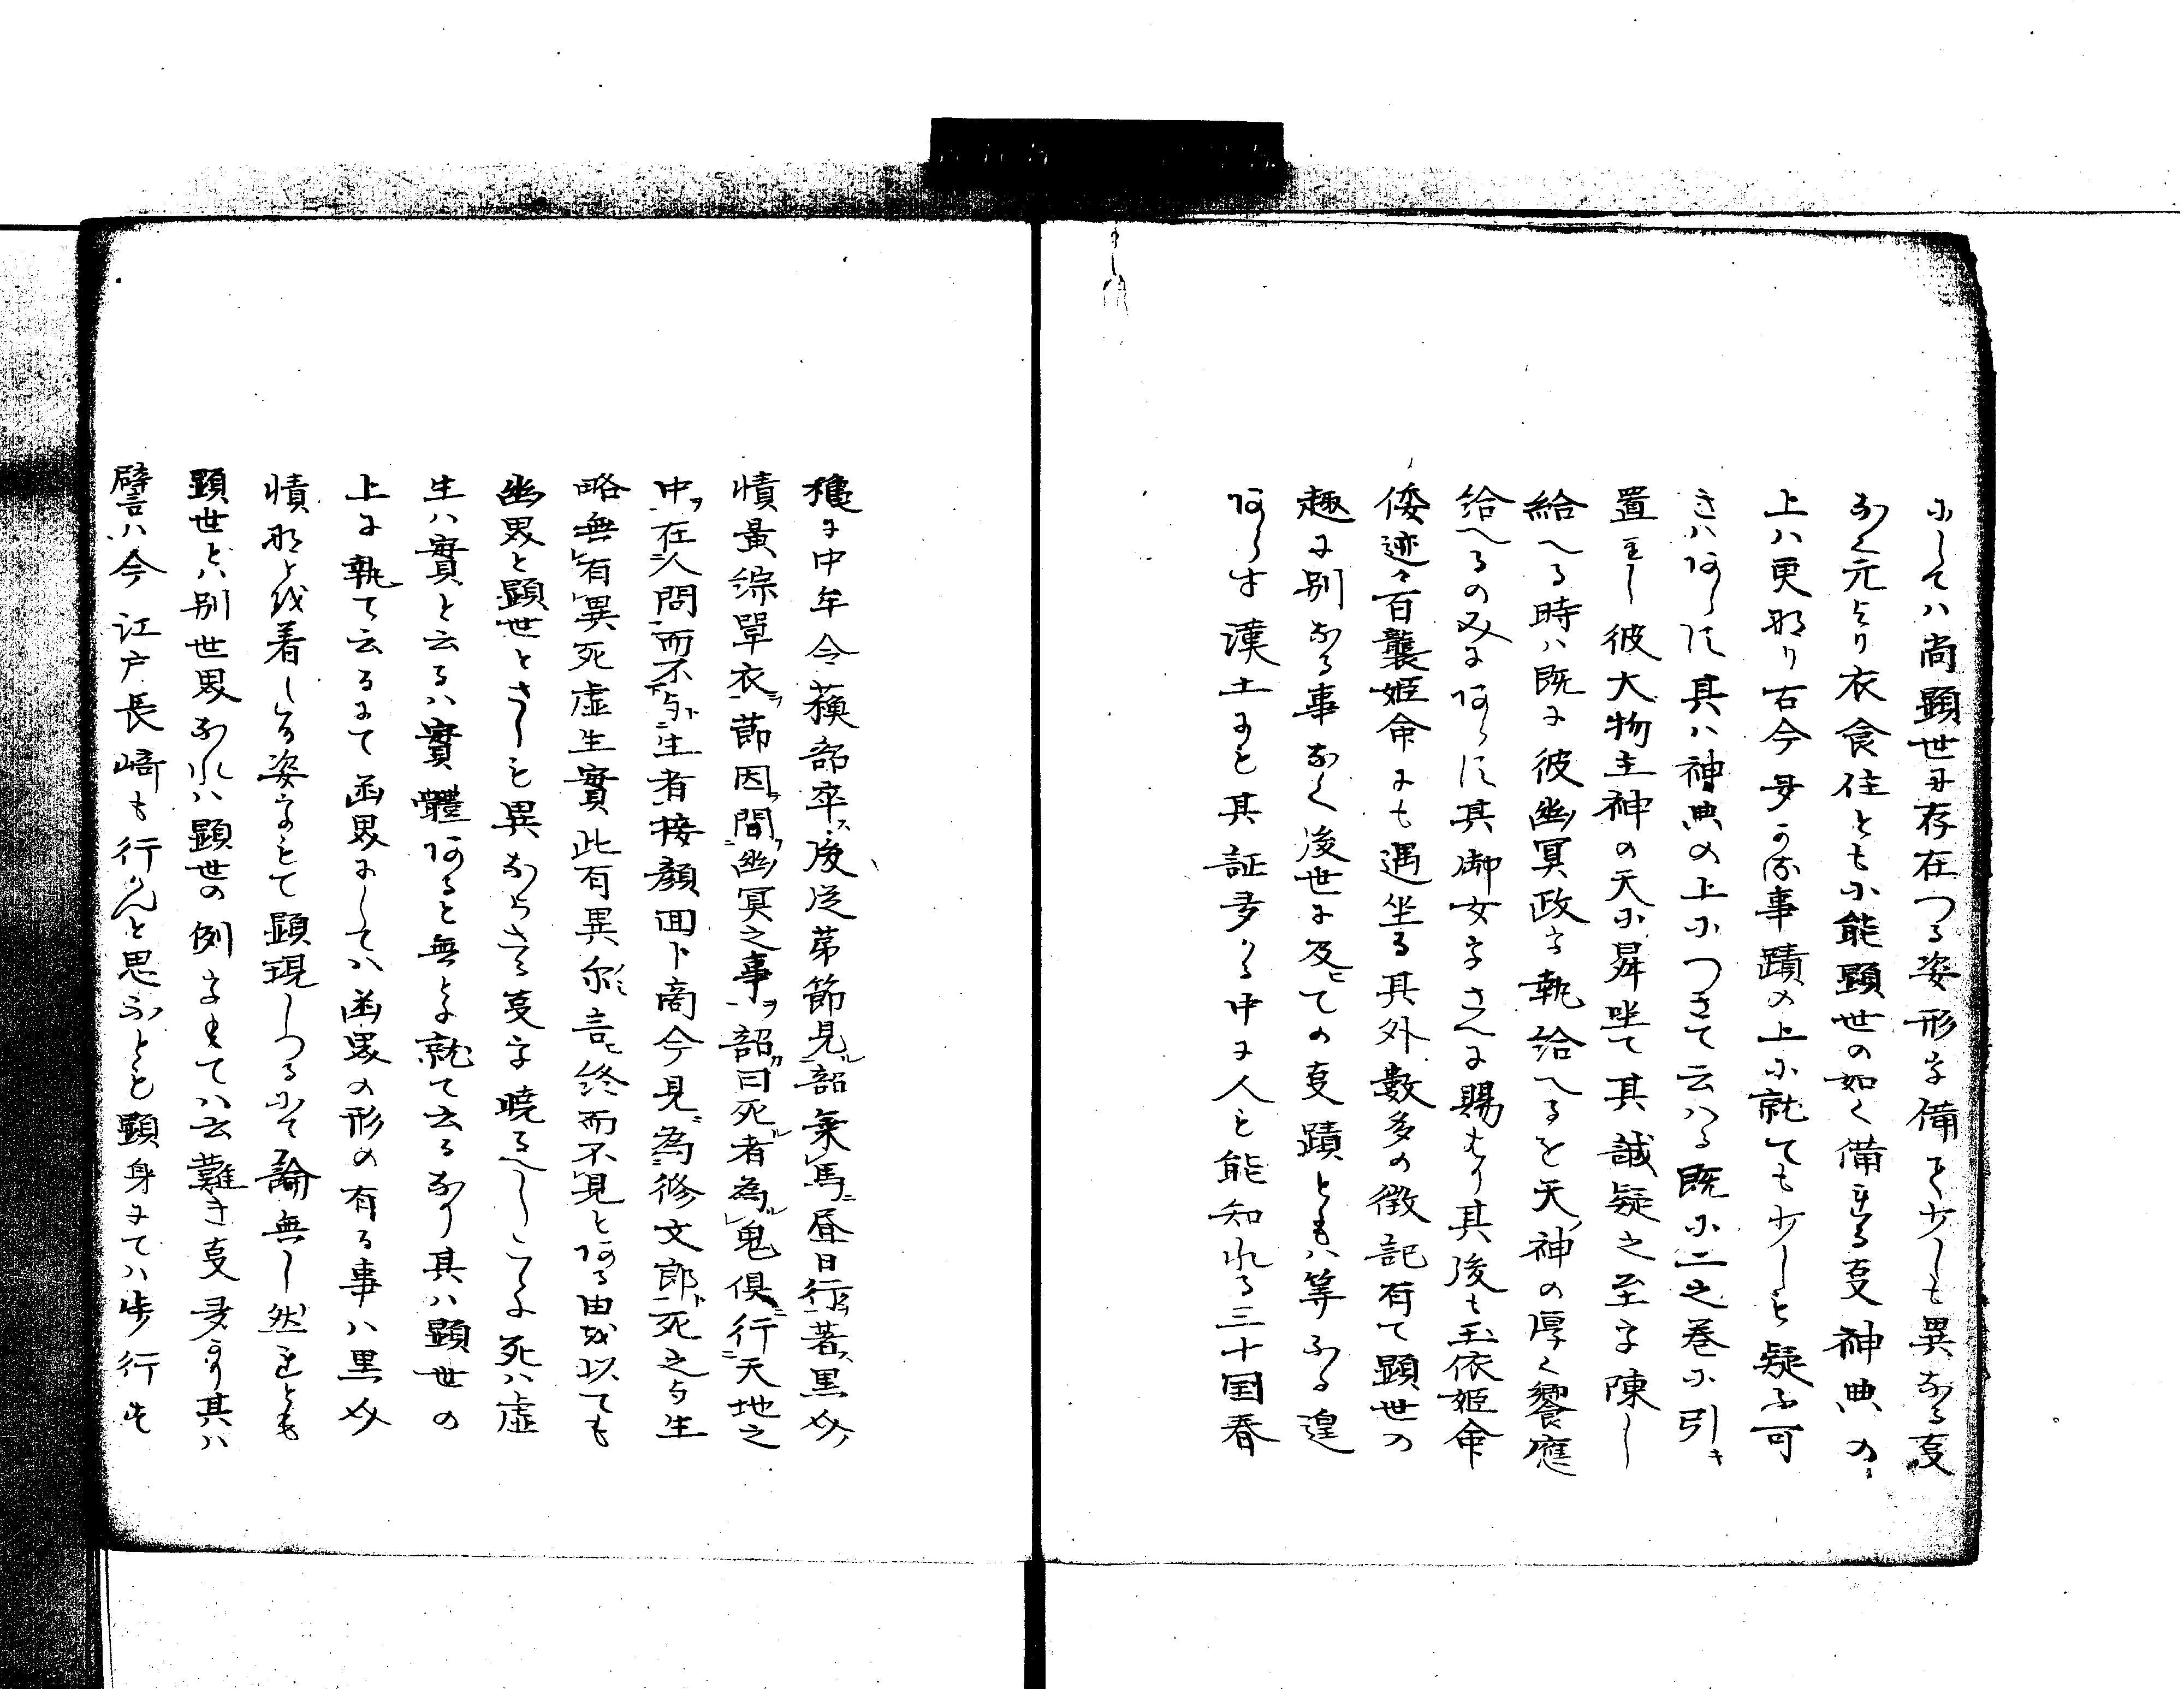 にしては尚顕世に存在つる姿形を備て少しも異なる叓
なく元より衣食住ともに能顕世の如く備まる叓神典の
上ハ更なり古今毎の事蹟の上に就ても少しも疑ふ可
きハあらす其ハ神典の上につきて云ハる既に二之巻に引き
置まし彼大物主神の天に昇坐て其誠疑之至を陳し
給へる時ハ既に彼幽冥政を執給へるを天神の厚く饗應
給へるのみにあらす其御女をさへに賜はり其後も玉依姫命
倭迹々百襲姫命にも遇坐る其外数多の徴記有て顕世の
趣に別なる事なく後世に及ての叓蹟ともハ等ふる遑
あらす漢土にも其証多かる中に人も能知れる三十国春
穐に中牟令蘓韶卒ス後従苐節見韶乗馬昼日行著黒㡀
幘黄綜單衣節因問幽冥之事韶曰死者為鬼倶行天地之
中在人間而不与生者接顔回卜商今見為修文郎死之与生
略無有異死虚生實此有異尓言終而不見とある由を以ても
幽界と顕世とさしも異ならさる叓を暁るへしこゝに死ハ虚
生ハ實と云るハ實體あると無とに就て云るなり其ハ顕世の
上に執て云るにて幽界にしてハ幽界の形の有る事ハ黒㡀
幘なとを着しる姿をもて顕現しつるにて論無し然れとも
顕世とハ別世界なれハ顕世の例をもてハ云難き叓多かり其ハ
譬ハ今江戸長崎も行かんと思ふとも顕身にてハ歩行も